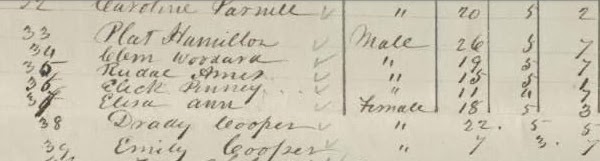 22 Caroline Parnell " 20 5 2
33 Plat Hamilton Male 26 5 7
34 Clem Woodard " 19 5 7
35 Rudae Ames " 15 5
36 Elick Pinney " 11 4 7
37 Elisa ann Female 18 5 3
38 Drady Cooper " 22. 5 5
39 Emily Cooper " 7 3. 7